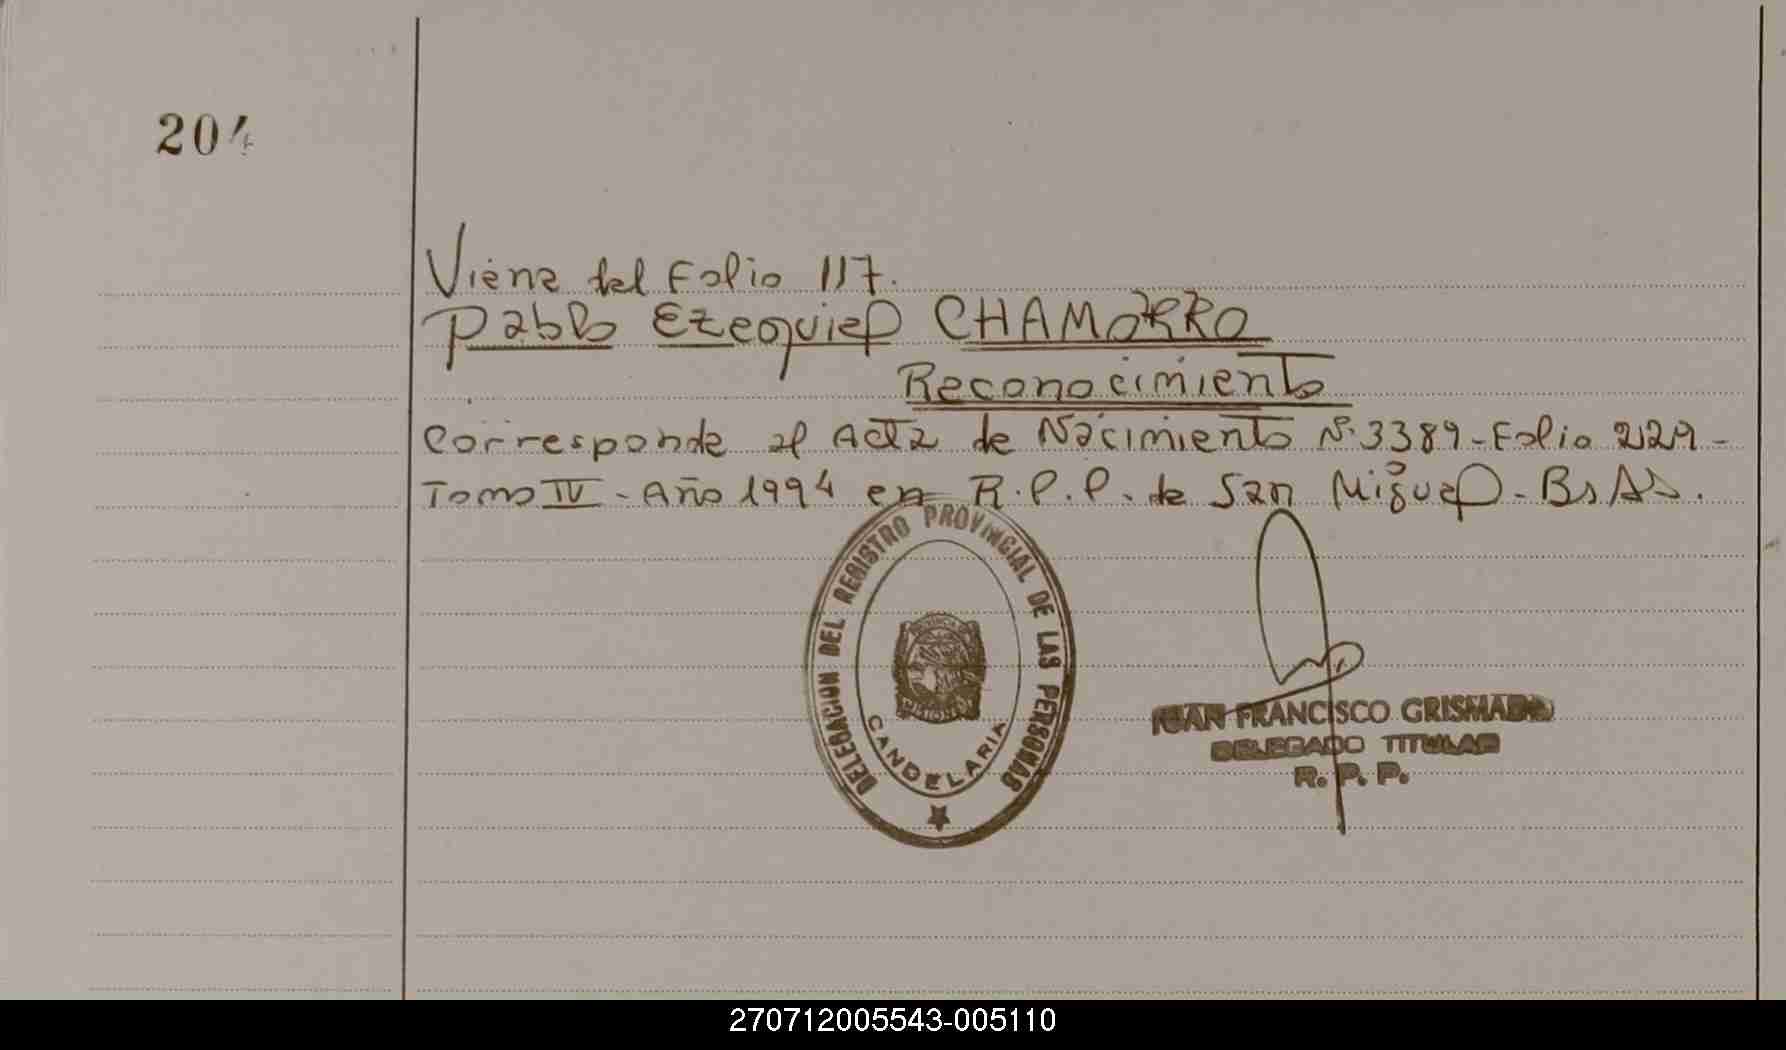 204
Viene del Folio 117.
Pablo Ezequiel CHAMORRO
Reconocimiento
Corresponde al Acta de Nacimiento Nº 3389 - Folio 229 -
Tomo IV - Año 1994 en R.P.P. de San Miguel - Bs As.
DELEGACION DEL REGISTRO PROVINCIAL DE LAS PERSONAS
CANDELARIA
JUAN FRANCISCO GRISMADO
DELEGADO TITULAR
R. P. P.
270712005543-005110